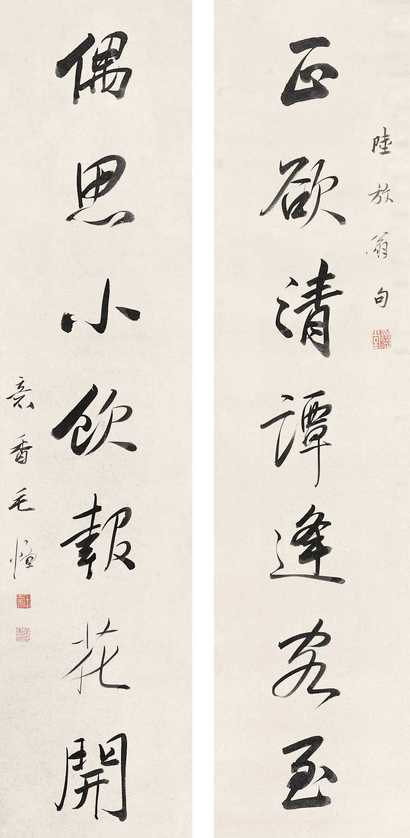 陸放翁句
正欲清譚逢客至
偶思小飲報花開
意香毛